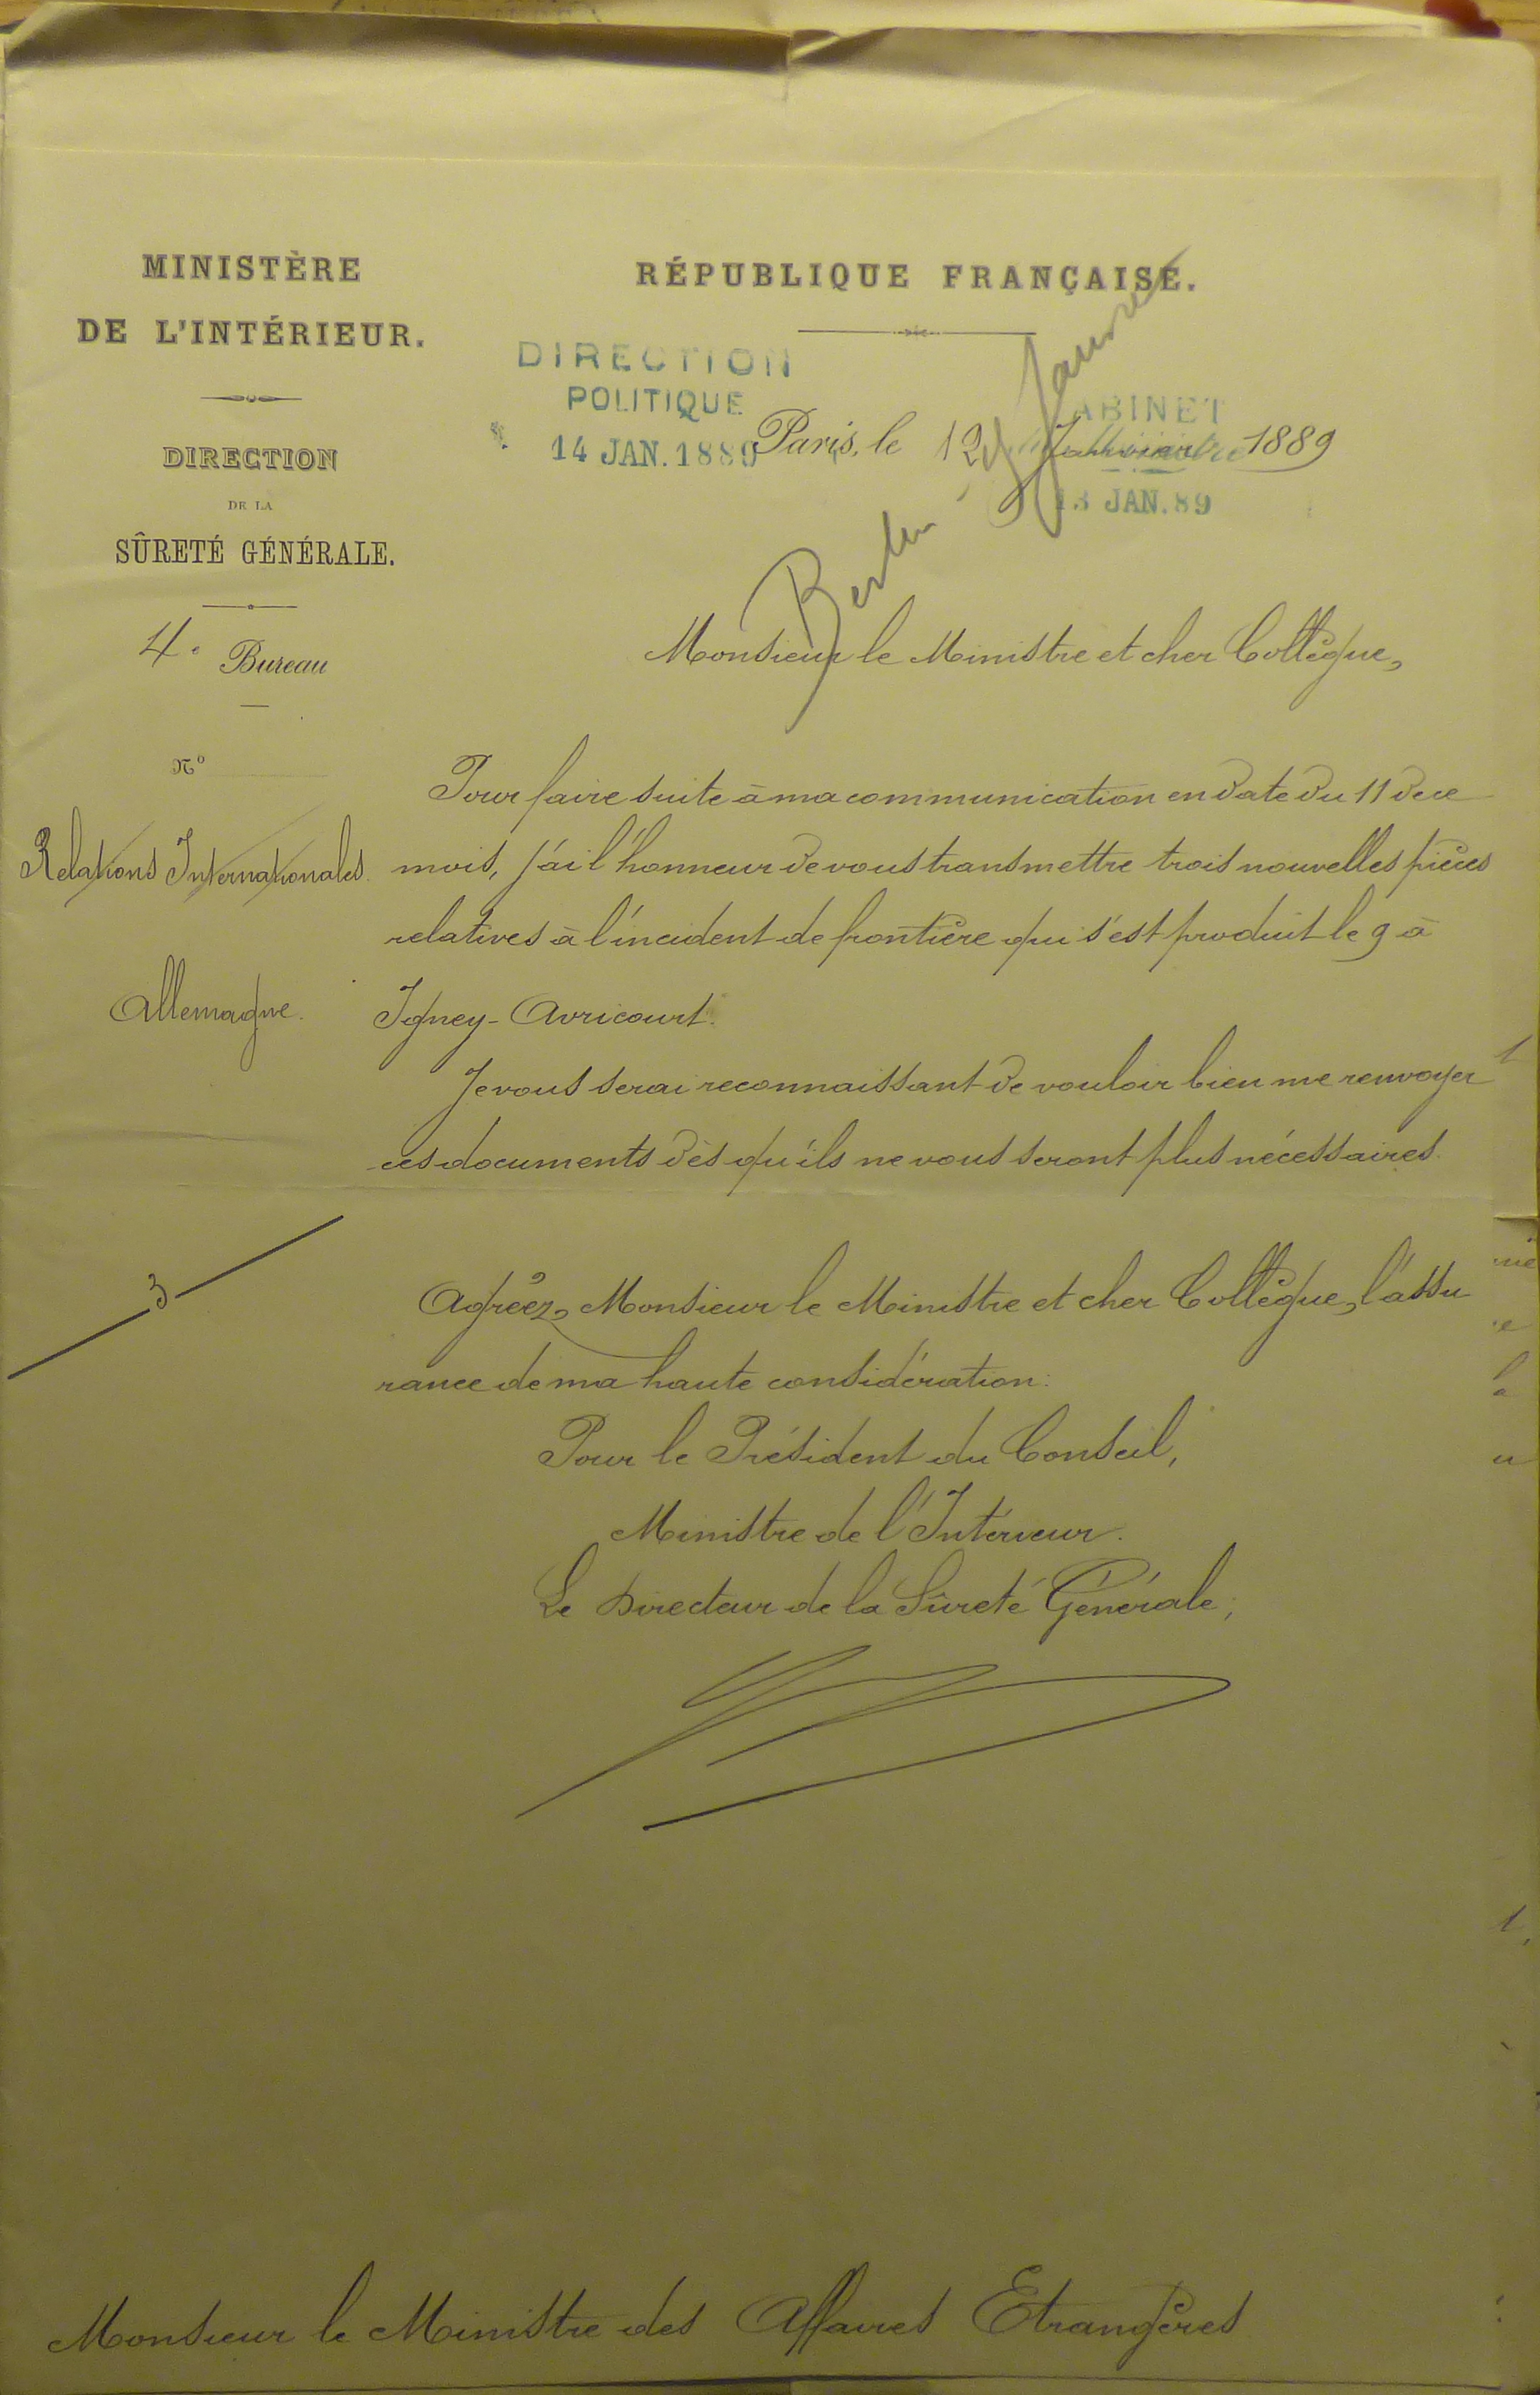 MINISTÈRE
DE L'INTÉRIEUR.
DIRECTION
DE LA
SÛRETÉ GÉNÉRALE.
4e Bureau
No
Relations Internationales
Allemagne.
3
RÉPUBLIQUE FRANÇAISE.
DIRECTION
POLITIQUE
14 JAN. 1889
CABINET
13 JAN. 89
Berlin
Paris, le 12 Janvier 1889
Monsieur le Ministre et cher Collègue,
Pour faire suite à ma communication en date du 11 de ce
mois, j'ai l'honneur de vous transmettre trois nouvelles pièces
relatives à l'incident de frontière qui s'est produit le 9 à
Igney-Avricourt.
Je vous serai reconnaissant de vouloir bien me renvoyer
ces documents dès qu'ils ne vous seront plus nécessaires.
Agréez, Monsieur le Ministre et cher Collègue, l'assu
rance de ma haute considération.
Pour le Président du Conseil,
Ministre de l'Intérieur.
Le Directeur de la Sûreté Générale,
Monsieur le Ministre des Affaires Etrangères